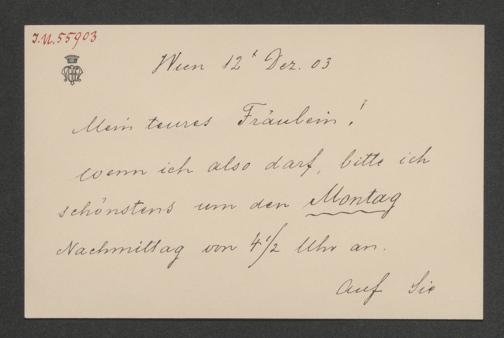 I.N.55903
Wien 12t Dez. 03
Mein teures Fräulein!
wenn ich also darf, bitte ich
schönstens um den Montag
Nachmittag von 4 1/2 Uhr an.
Auf Sie